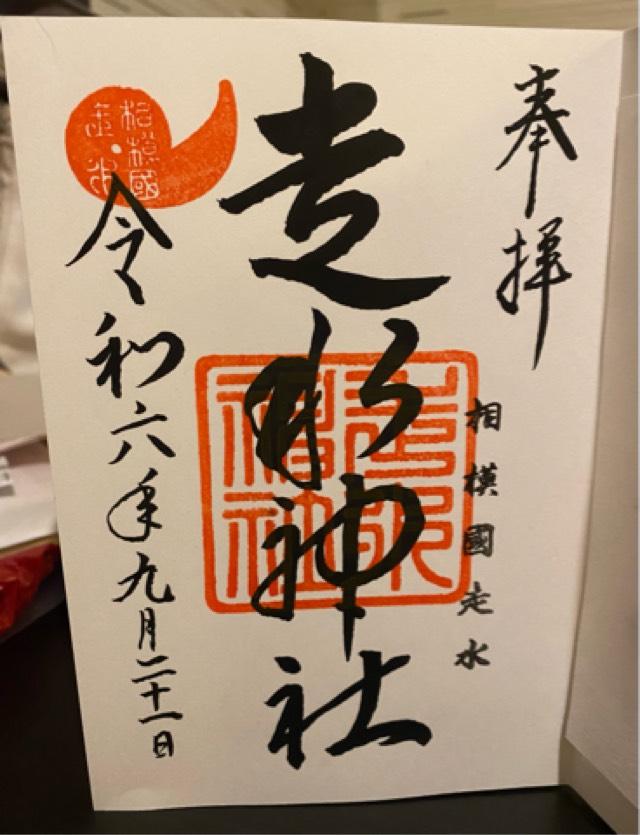 奉拝
相模國走水
走水神社
令和六年九月二十一日
相模國
走水
走水
神社